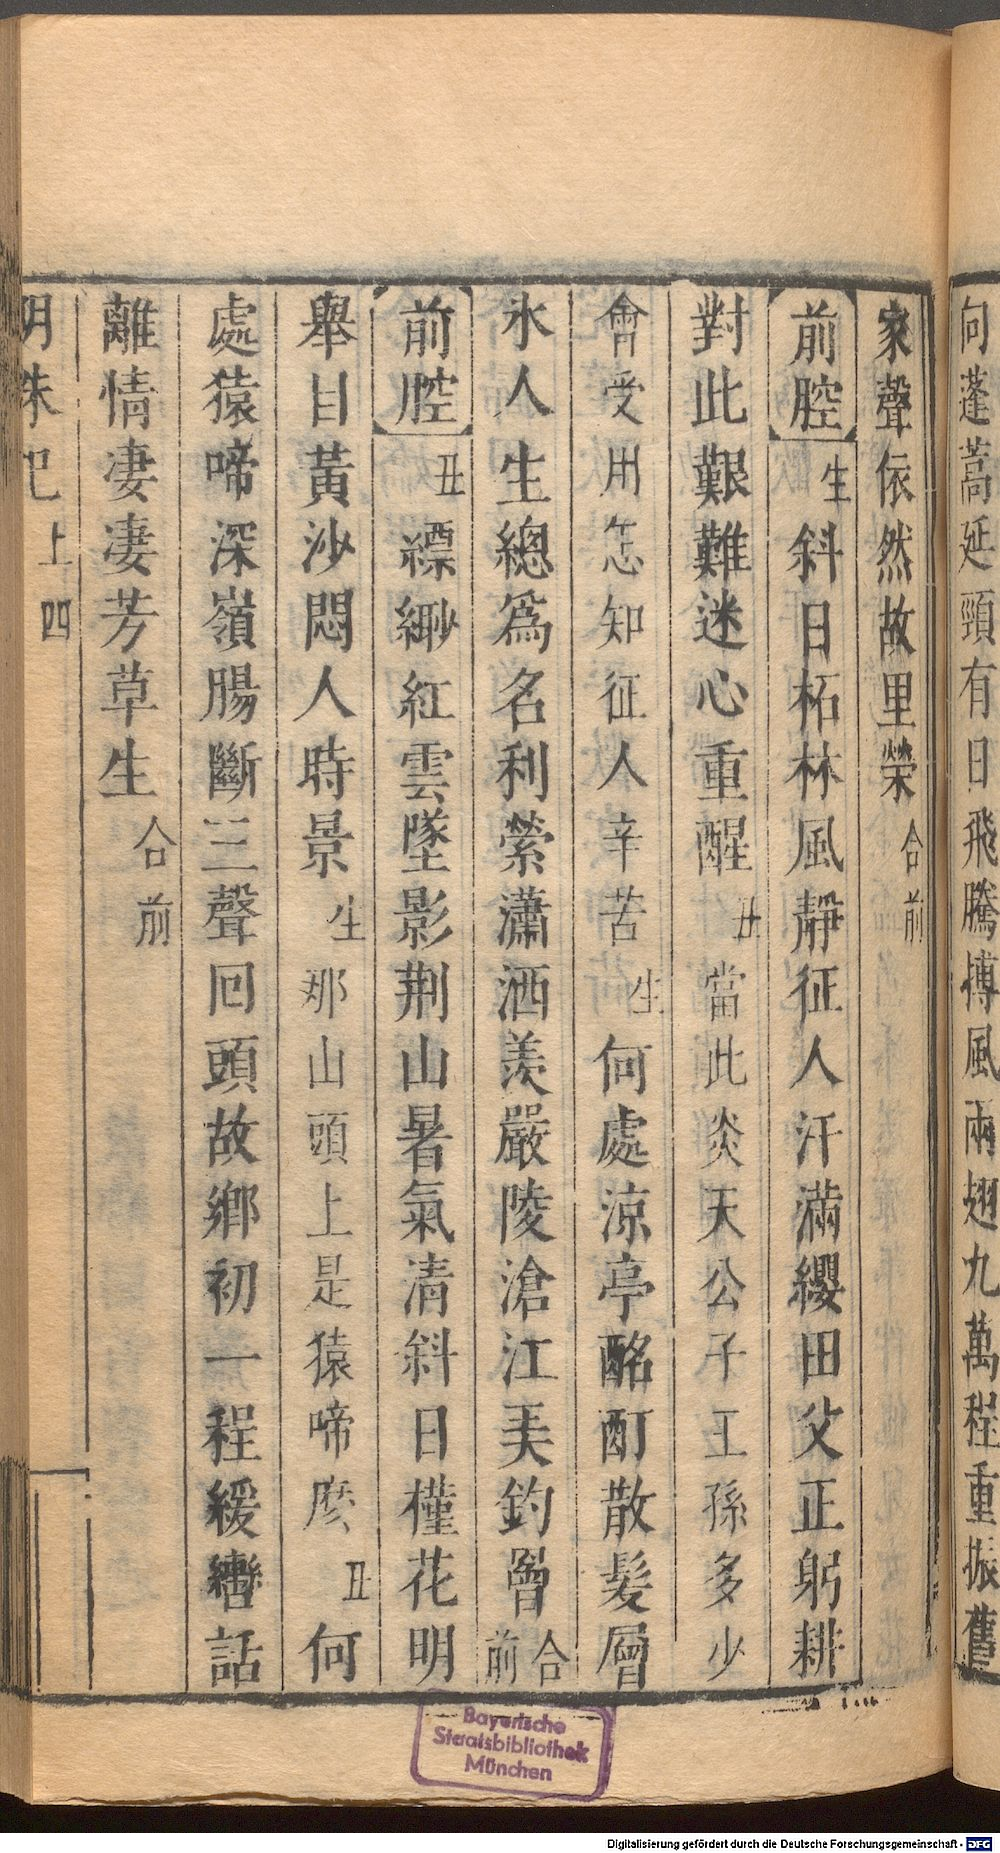 向蓬蒿延頸有日飛騰搏風兩翅九萬程重振舊
家聲依然故里榮合前
前腔生斜日柘林風靜征人汗滿纓田父正躬耕
對此艱難迷心重醒丑當此炎天公子王孫多少
會受用怎知征人辛苦生何處涼亭酩酊散髮層
氷人生總爲名利縈瀟洒羨嚴陵滄江美釣罾合前
前腔丑縹緲紅雲墜影荆山暑氣清斜日槿花明
舉目黃沙悶人時景生那山頭上是猿啼麽丑何
處猿啼深嶺腸斷三聲回頭故鄉初一程緩轡話
離情凄凄芳草生合前
明珠記上四
Bayerische
Staatsbibliothek
München
Digitalisierung gefördert durch die Deutsche Forschungsgemeinschaft - DFG